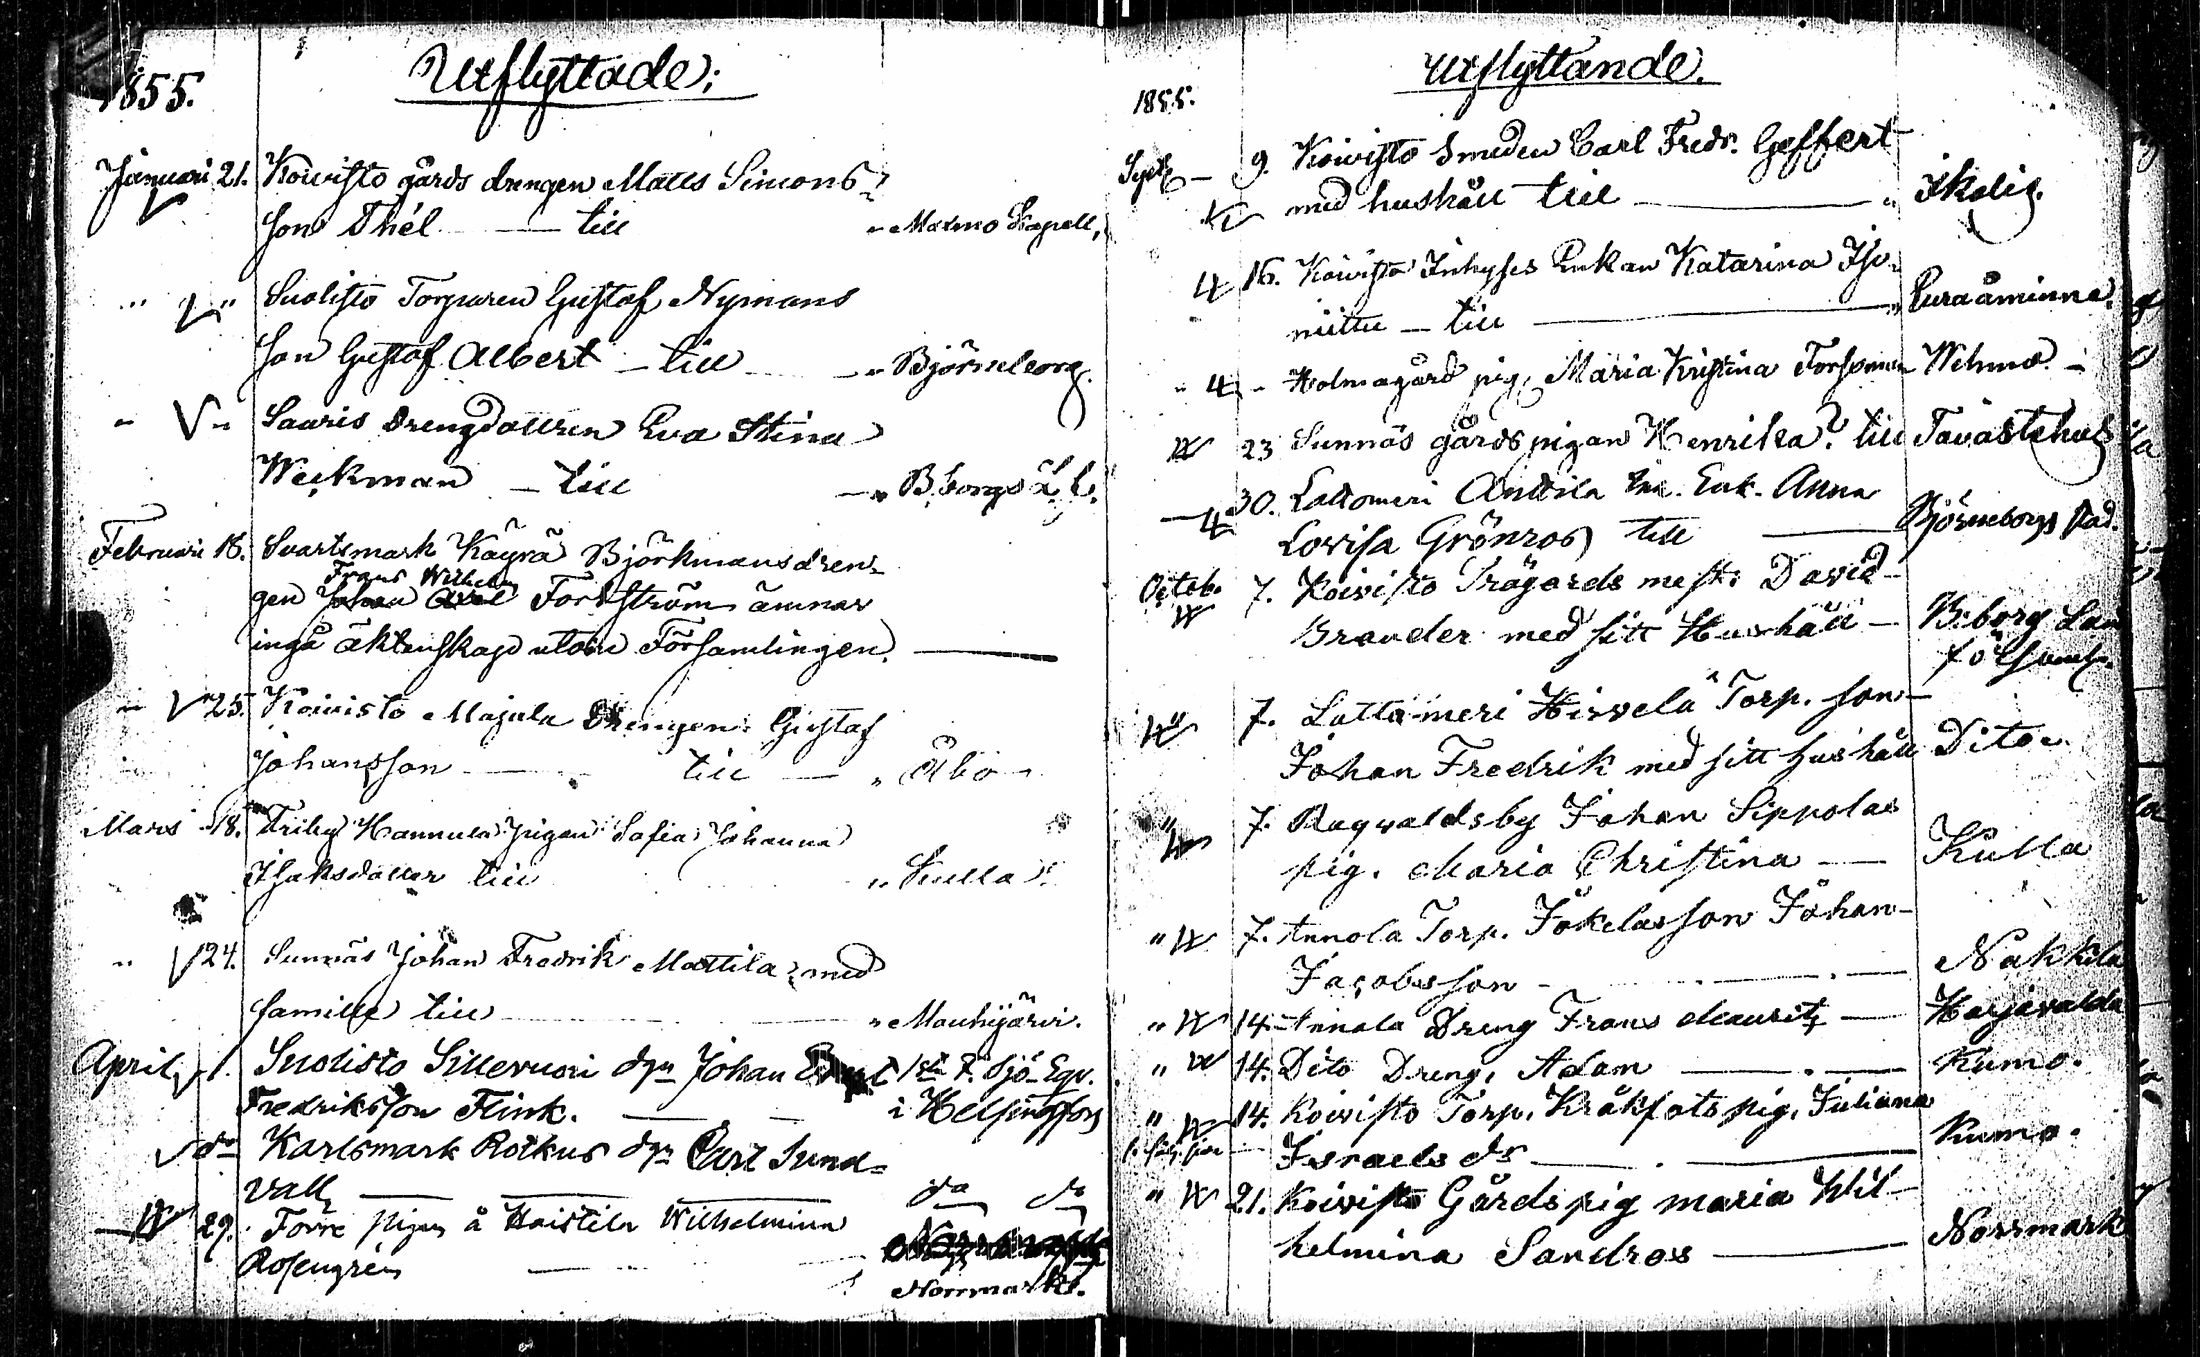 Utflyttade:
1855.
Januari 21. Koivisto gårds drengen Matts Simons-
son Thél — till " Marmo Kapell,
" " Suolisto Torparen Gustaf Nymans
son Gustaf Albert — till — " Björneborg.
" " Saaris Drengdottren Eva Stina
Weckman — till — " B.borgs L. f.
Februari 18. Svartsmark Käyrä Björkmans dren-
Frans Wilhelm
gen Johan Axel Forsström ämnar
ingå äktenskap utom Församlingen. —
" 25. Koivisto Majula Drengen Gustaf
Johansson — till — " Åbo
Mars 18. Friby Hannula pigan Sofia Johanna
Isaksdotter till " Kulla
" 24. Sunnäs Johan Fredrik Mattila med
familie till — " Mouhijärvi.
April 1. Suolisto Sillervuori dgn Johan 1sta F. Sjö-Eqv.
Fredriksson Flink. — i Helsingfors
do Karlsmark Rotkus dgn Carl Sund-
vall — do do
29. Torre pigan å Haistila Wilhelmina
Rosengrén — Norrmark.
Utflyttande.
1855.
Sept. — 9. Koivisto Smeden Carl Fredr. Geffert
med hushåll till — " Ikalis.
16. Koivisto Inhyses Enkan Katarina Iso-
niittu — till — " Euraåminne.
" - Holmagård pig. Maria Kristina Forsman Wehmo. -
23 Sunnäs gårdspigan Henrika? till Tavastehus
30. Lattomeri Anttila Enk. Anna
Lovisa Grönroos till — Björneborgs stad.
Octob. 7. Koivisto Trägårds mest. David
Brander med sitt Hushåll — B:borg Land
församl.
" 7. Lattomeri Hirvelä Torp. son
Johan Fredrik med sitt hushåll Dito.
" 7. Ragvaldsby Johan Sippolas
pig. Maria Christina — Kulla
" 7. Annola Torp. Jokelas son Johan
Jacobsson — Nakkila
" 14. Annala Dreng Frans Mauritz — Harjavalda
" 14. Dito Dreng. Adam — Kumo.
" 14. Koivisto Torp. Kråkfots pig. Juliana
Israels dr — Kumo.
" 21. Koivisto Gårdspig Maria Wil-
helmina Sandros — Norrmark